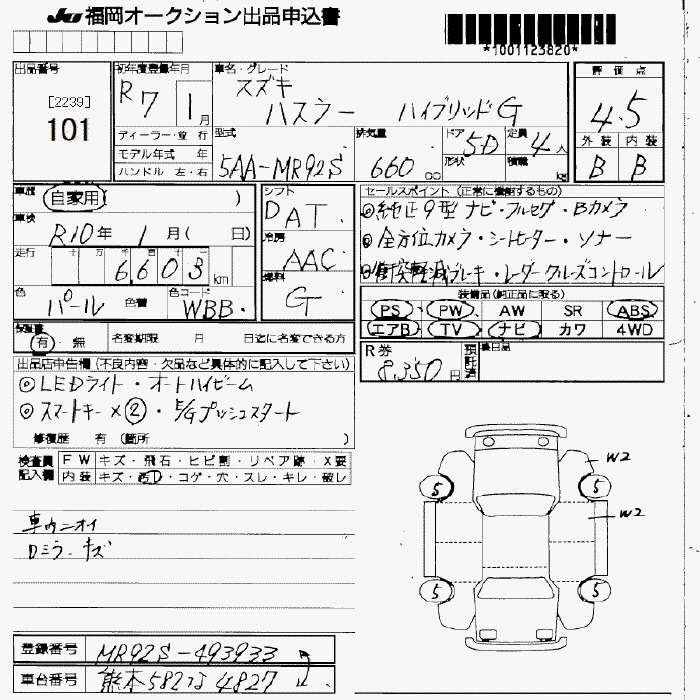 JU 福岡オークション出品申込書
*1001123820*
出品番号 [2239] 101
初年度登録年月 R7 1月
車名・グレード スズキ ハスラー ハイブリッドG
評価点 4.5
ディーラー・並行
モデル年式 年
ハンドル 左・右
型式 5AA-MR92S
排気量 660 cc
ドア形状 5D
定員 4人
積載 kg
外装 内装
B B
車歴 自家用 )
車検 R10年 1月( 日)
走行 6603 km
色 パール 色替 色コード WBB
シフト DAT
冷房 AAC
燃料 G
セールスポイント (正常に機能するもの)
◎純正9型ナビ・フルセグ・Bカメラ
◎全方位カメラ・シートヒーター・ソナー
◎衝突軽減ブレーキ・レーダークルーズコントロール
装備品(純正品に限る)
PS PW AW SR ABS
エアB TV ナビ カワ 4WD
保証書 有・無 名変期限 月 日迄に名変できる方
R券 8,350円 預託済 後日品
出品店申告欄(不良内容・欠品など具体的に記入して下さい)
◎LEDライト・オートハイビーム
◎スマートキー×②・E/Gプッシュスタート
修復歴 有(箇所 )
検査員記入欄 FW キズ・飛石・ヒビ割・リペア跡・X要
内装 キズ・汚D・コゲ・穴・スレ・キレ・破レ
車内ニオイ
Dミラーキズ
W2
5 5
W2
5 5
登録番号 MR92S-493933
車台番号 熊本582 な 4827